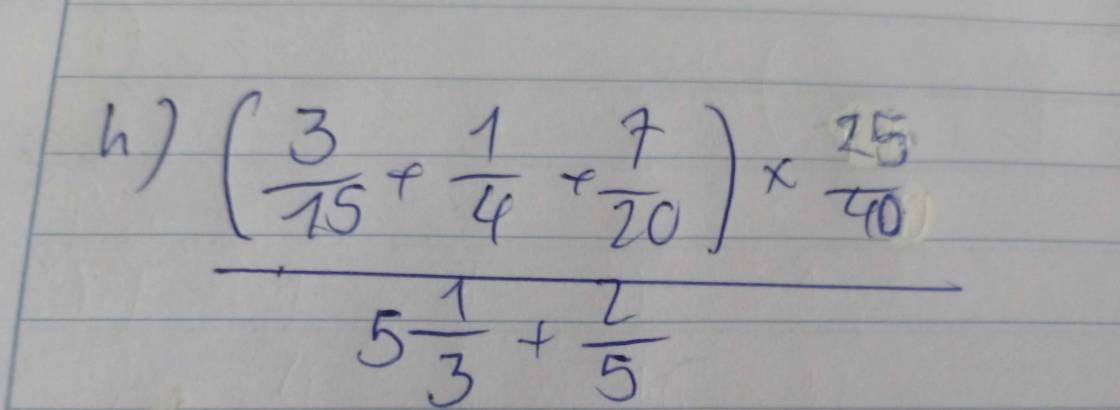 h) (3/15 + 1/4 + 7/20) × 25/40
5 1/3 + 2/5